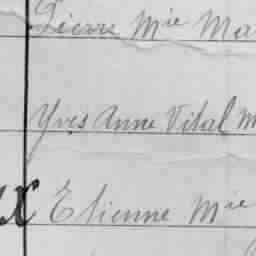 Pierre Mie Ma
Yves Anne Vital M
X Etienne Mie